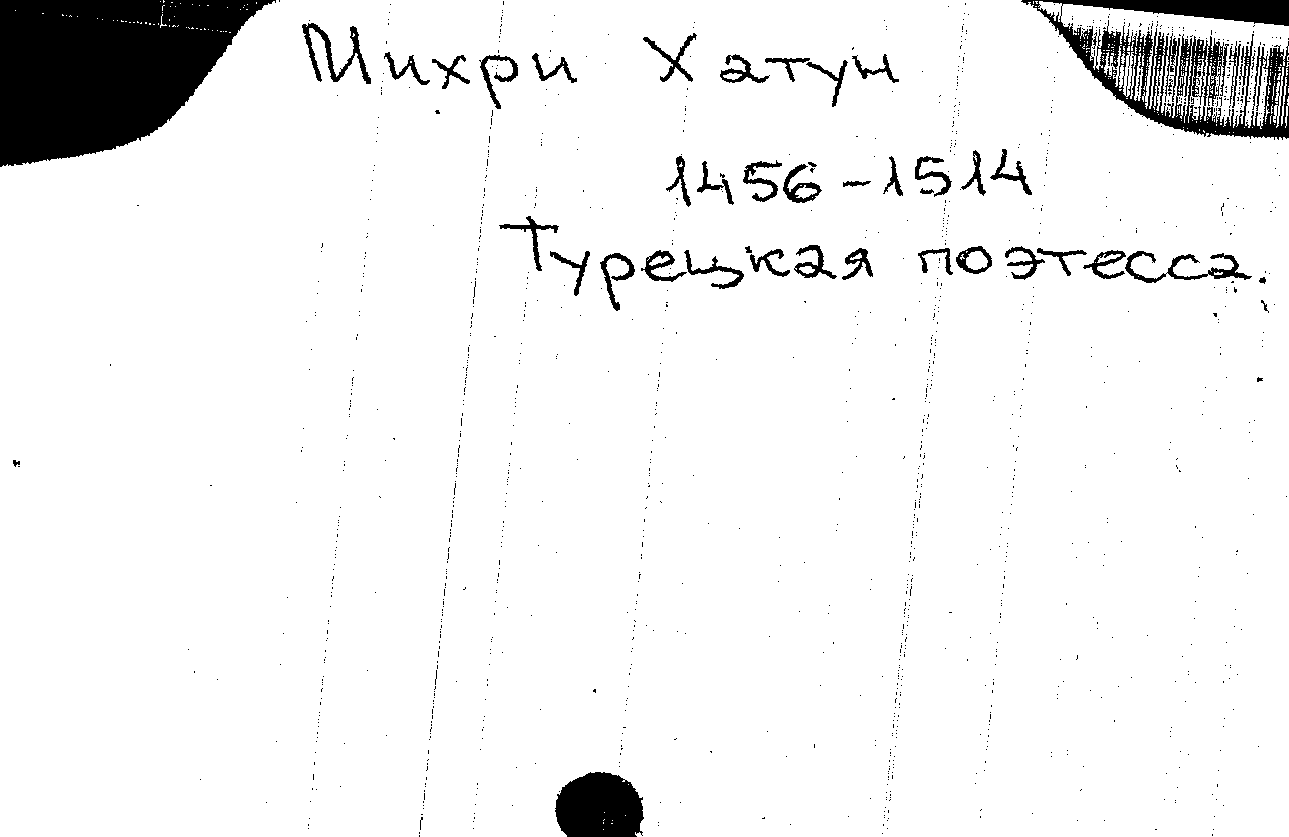 Михри Хатун
1456-1514
Турецкая поэтесса.